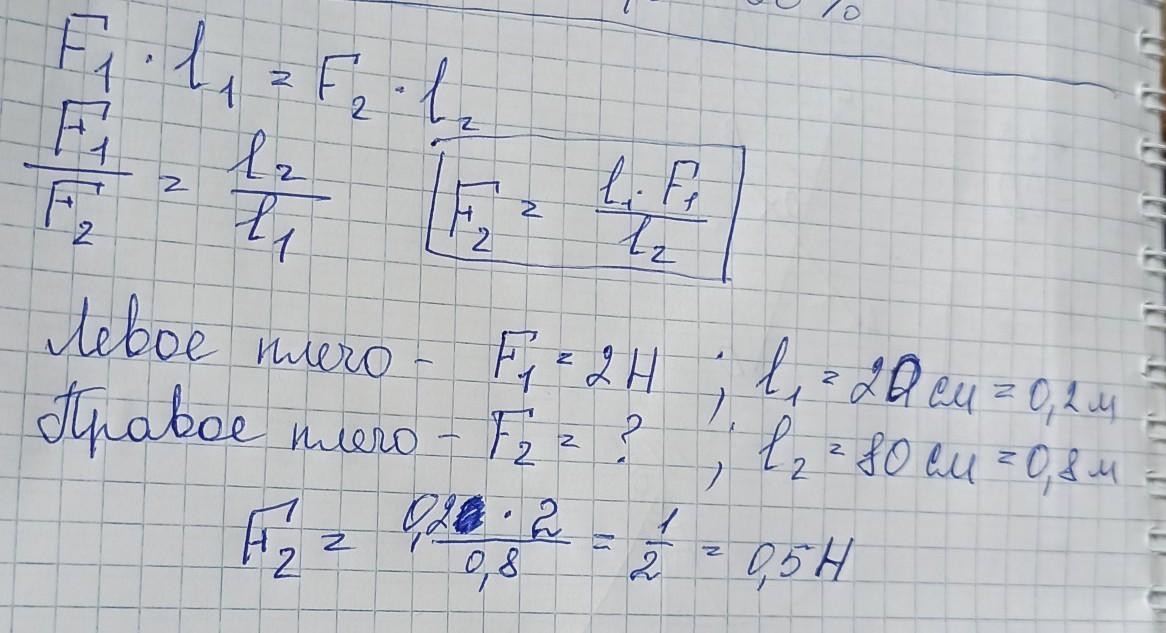 F₁ · l₁ = F₂ · l₂
F₁/F₂ = l₂/l₁ F₂ = l₁ · F₁/l₂
Левое плечо - F₁ = 2Н ; l₁ = 20 см = 0,2 м
Правое плечо - F₂ = ? ; l₂ = 80 см = 0,8 м
F₂ = 0,2 · 2/0,8 = 1/2 = 0,5 Н